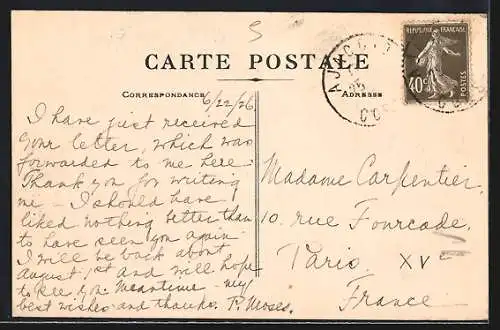 5
CARTE POSTALE
CORRESPONDANCE
ADRESSE
RÉPUBLIQUE FRANÇAISE
40c
POSTES
AJACCIO
CORSE
6/22/26
I have just received
your letter, which was
forwarded to me here
Thank you for writing
me – I should have
liked nothing better than
to have seen you again
I will be back about
August 1st and will hope
to see you. Meantime – my
best wishes and thanks. P. Moses.
Madame Carpentier,
10. rue Fourcade,
Paris XVe
France